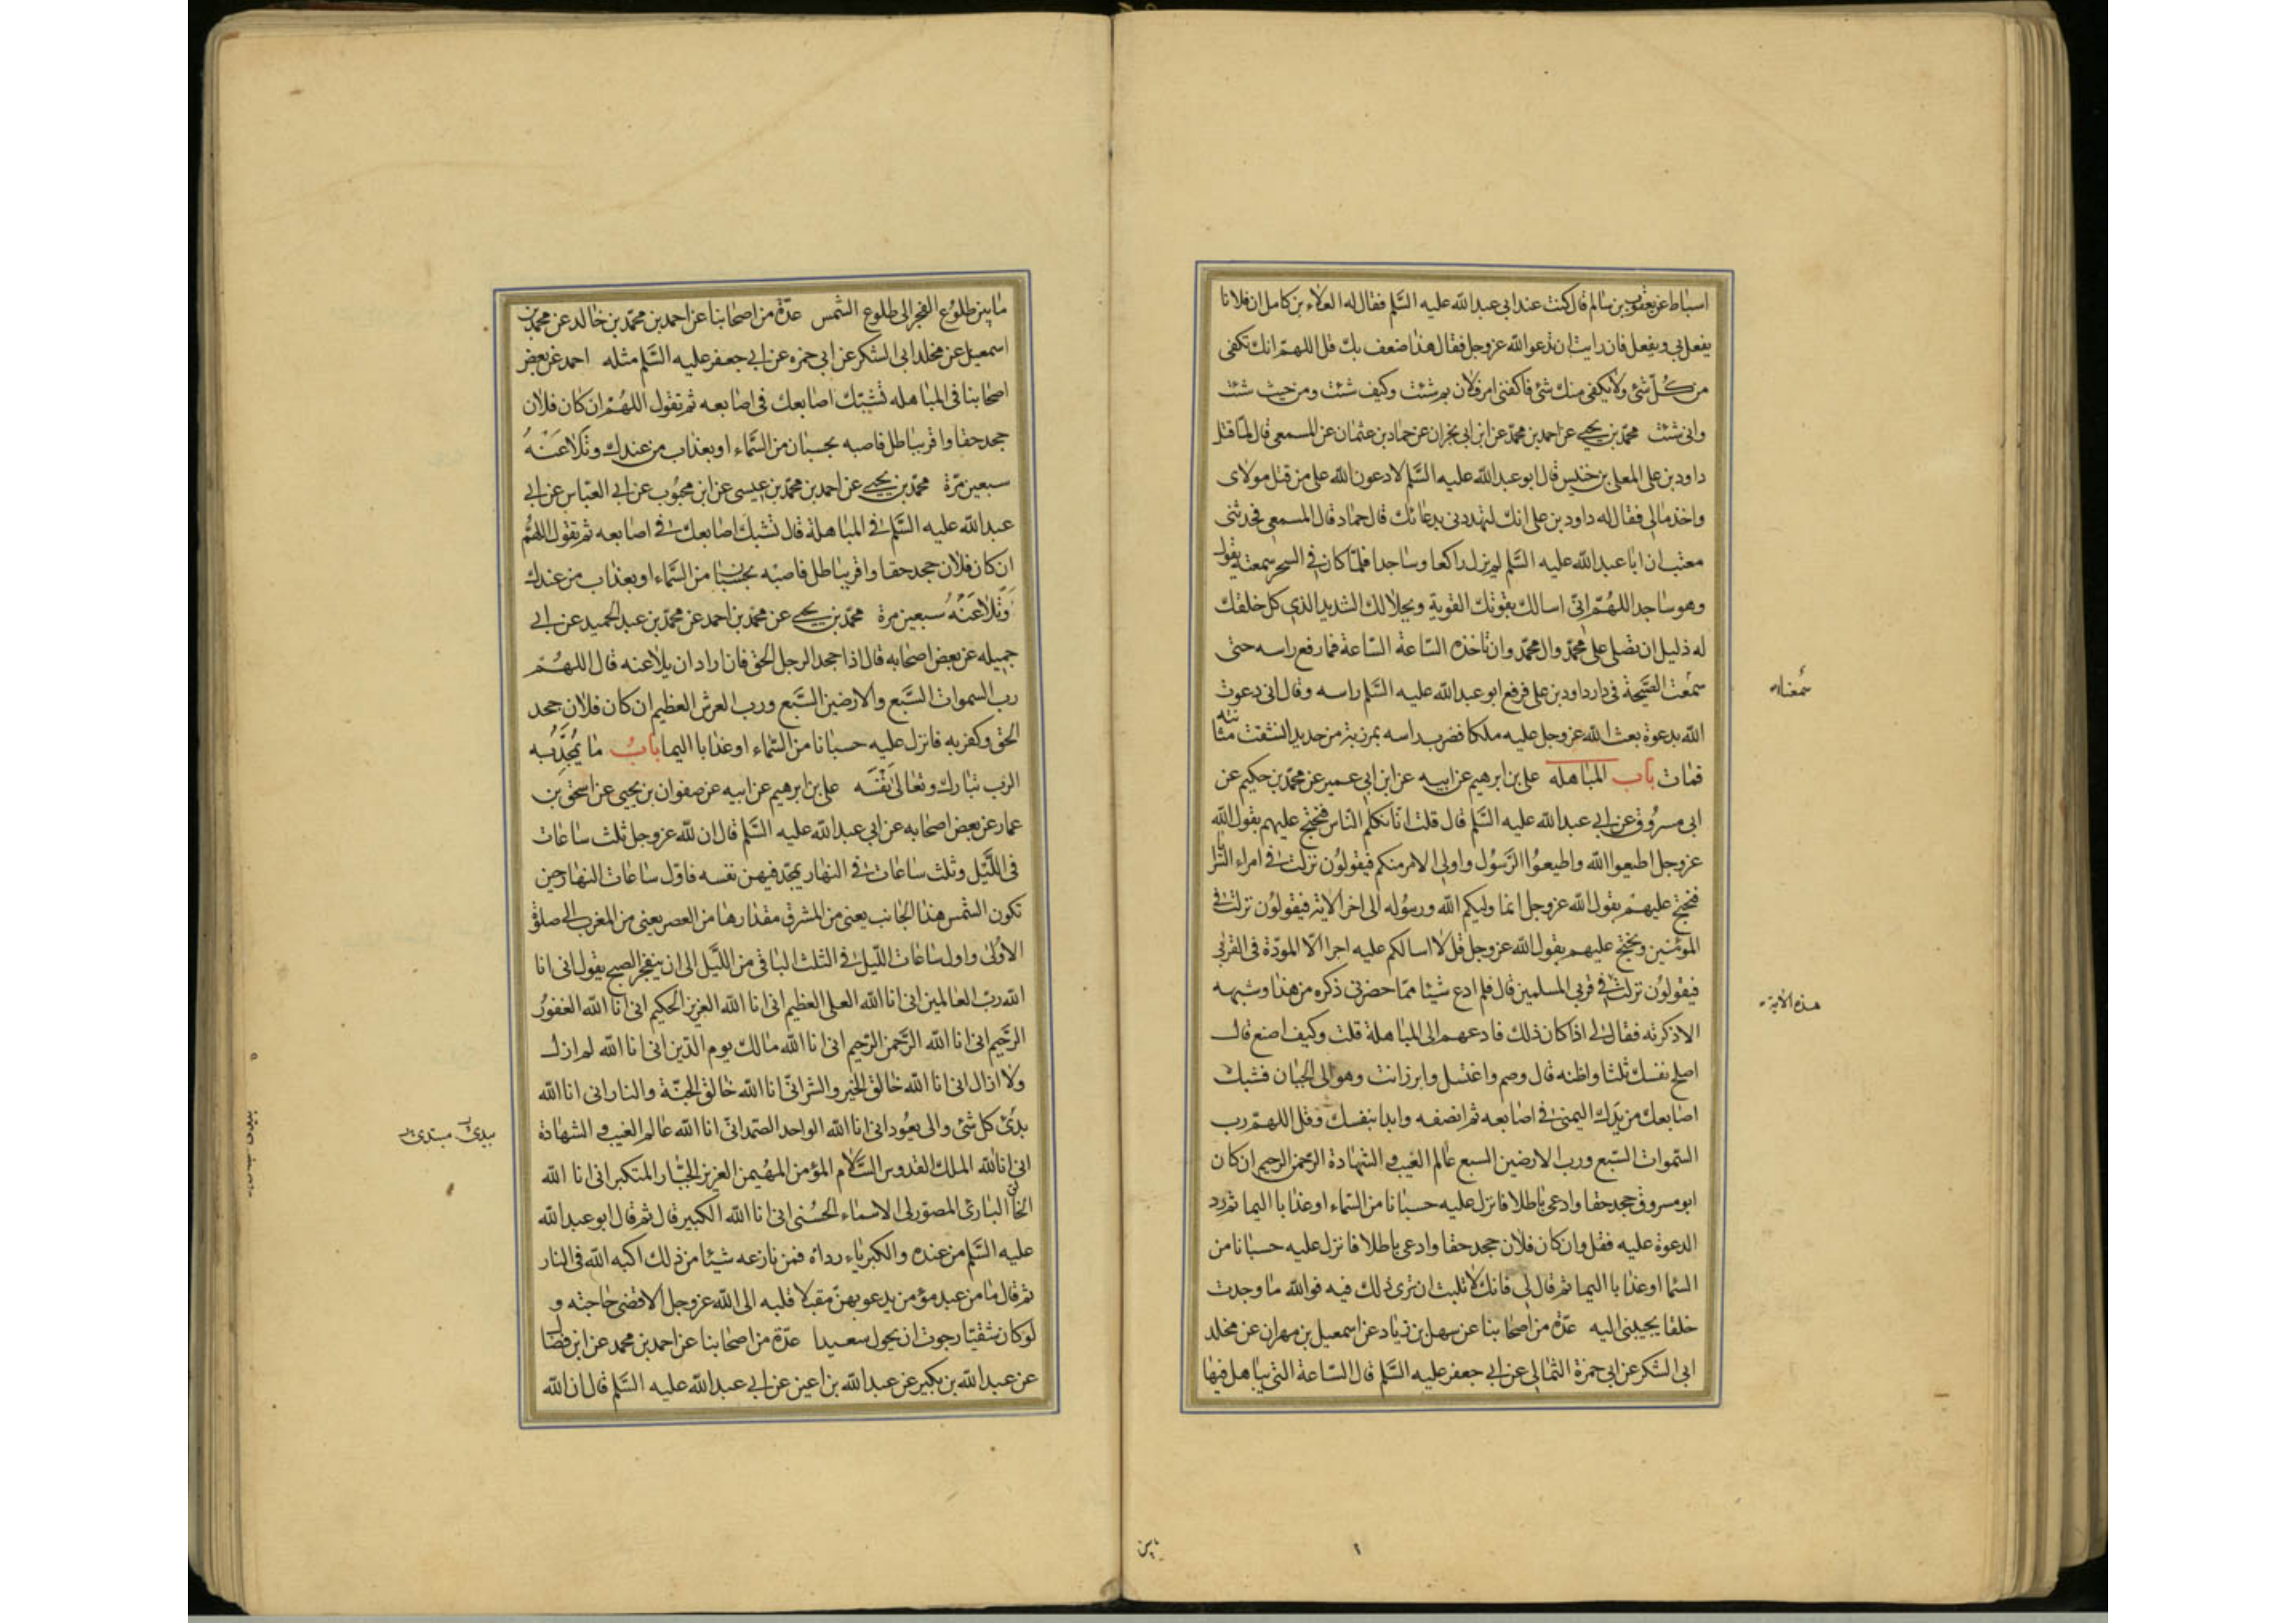 اسباط عن يعقوب بن سالم قال كنت عند ابى عبد الله عليه السّلم فقال له العلاء بن كامل ان فلانا
يفعل بى ويفعل فان رايت ان تدعو الله عز وجل فقال هذا ضعف بك قل اللهمّ انك تكفى
من كُلّ شئ ولا يكفى منك شئ فاكفنى امر فلان بم شئت وكيف شئت ومن حيث شئت
وانى شئت محمّد بن يحيى عن احمد بن محمّد عن ابن ابى نجران عن حماد بن عثمان عن المسمعى قال لمّا قتل
داود بن على المعلى بن خنيس قال ابو عبد الله عليه السّلم لادعون الله على من قتل مولاى
واخذ مالى فقال له داود بن على انك لتهددنى بدعائك قال حماد قال المسمعى فحدثنى
معتب ان ابا عبد الله عليه السّلم لم يزل راكعا وساجدا فلمّا كان فى السحر سمعته يقول
وهو ساجد اللهُمّ انّى اسالك بقوتك القوية وبجلالك الشديد الذى كل خلقك
له ذليل ان تصلى على محمّد وال محمّد وان تاخذه السّاعة السّاعة فما رفع راسه حتى
سمعت الصّيحة فى دار داود بن على فرفع ابو عبد الله عليه السّلم راسه وقال انى دعوت
الله بدعوة بعث الله عز وجل عليه ملكا فضرب راسه بمرزبة من حديد انشقت مثانته
فمات باب المباهله على بن ابرهيم عن ابيه عن ابن ابى عمير عن محمّد بن حكيم عن
ابى مسرُوق عن ابى عبد الله عليه السّلم قال قلت انّا نكلم النّاس فنحتج عليهم بقول الله
عز وجل اطيعوا الله واطيعُوا الرّسُول واولى الامر منكم فيقولُون نزلت فى امراء السّرايا
فنحتج عليهمْ بقول الله عز وجل انما وليكم الله ورسُوله الى اخر الاية فيقولوُن نزلت فى
المومنين ونحتج عليهم بقول الله عز وجل قل لا اسالكم عليه اجرا الّا المودّة فى القربى
فيقولوُن نزلت فى قربى المسلمين قال فلم ادع شيئا ممّا حضرنى ذكره من هذا وشبهه
الا ذكرته فقال لى اذا كان ذلك فادعهم الى المباهلة قلت وكيف اصنع قال
اصلح نفسك ثلثا واظنه قال وصم واغتسل وابرز انت وهو الى الجبان فشبك
اصابعك من يدك اليمنى فى اصابعه ثم انصفه وابدا بنفسك وقل اللهمّ رب
السّموات السّبع ورب الارضين السبع عالم الغيب والشهادة الرحمن الرحيم ان كان
ابو مسروق جحد حقا وادعى باطلا فانزل عليه حسبانا من السّماء او عذابا اليما ثم رد
الدعوة عليه فقل وان كان فلان جحد حقا وادعى باطلا فانزل عليه حسبانا من
السّما او عذابا اليما ثم قال لى فانك لا تلبث ان ترى ذلك فيه فوالله ما وجدت
خلقا يجيبنى اليه عدّة من اصحابنا عن سهل بن زياد عن اسمعيل بن مهران عن مخلد
ابى الشكر عن ابى حمزة الثمالى عن ابى جعفر عليه السّلم قال السّاعة التى يباهل فيها
سمُعناه
هذه الاية
مابين
مابين طلوُع الفجر الى طلوع الشّمس عدّة من اصحابنا عن احمد بن محمّد بن خالد عن محمّد بن
اسمعيل عن مخلد ابى الشكر عن ابى حمزه عن ابى جعفر عليه السّلم مثله احمد عن بعض
اصحابنا فى المباهله تشبّك اصابعك فى اصابعه ثم تقول اللهُمّ ان كان فلان
جحد حقا واقر بباطل فاصبه بحسبان من السَّماء او بعذاب من عندك وتُلاعنهُ
سبعين مرّة محمّد بن يحيى عن احمد بن محمّد بن عيسى عن ابن محبُوب عن ابى العبّاس عن ابى
عبد الله عليه السّلم فى المباهلة قال تشبك اصابعك فى اصابعه ثم تقول اللهمُّ
ان كان فلان جحد حقا واقر بباطل فاصبْه بحسبان من السّماء او بعذاب من عندك
وَتُلاعَنْهُ سبعين مرة محمّد بن يحيى عن محمّد بن احمد عن محمّد بن عبد الحميد عن ابى
جميله عن بعض اصحابه قال اذا جحد الرجل الحق فان اراد ان يلاعنه قال اللهُمّ
رب السموات السَّبع والارضين السَّبع ورب العرش العظيم ان كان فلان جحد
الحق وكفر به فانزل عليه حسبانا من السّماء او عذابا اليما بابُ ما يُمجِّدُ به
الرب تبارك وتعالى نَفْسَه على بن ابرهيم عن ابيه عن صفوان بن يحيى عن اسحق بن
عمار عن بعض اصحابه عن ابى عبد الله عليه السّلم قال ان لله عز وجل ثلث ساعات
فى اللَّيل وثلث ساعات فى النهار يمجّد فيهن نفسه فاوّل ساعات النهار حين
تكون الشمس هذا الجانب يعنى من المشرق مقدارها من العصر يعنى من المغرب الى صلوة
الاوُلى واول ساعات اللّيل فى الثلث الباقى من اللَّيل الى ان ينفجر الصبح يقول انى انا
الله ربّ العالمين انى انا الله العلى العظيم انى انا الله العزيز الحكيم انى انا الله الغفورُ
الرَّحيم انى انا الله الرَّحمن الرّحيم انى انا الله مالك يوم الدّين انى انا الله لم ازل
ولا ازال انى انا الله خالق الخير والشر انّى انا الله خالق الجنّة والنار انى انا الله
بدُئ كل شئ والى يعوُد انى انا الله الواحد الصّمد انّى انا الله عالم الغيب والشهادة
انى انا الله الملك القدوس السَّلام المؤمن المهُيمن العزيز الجبّار المتكبر انى انا الله
الخالق البارئ المصوّر لى الاسماء الحُسْنى انى انا الله الكبير قال ثم قال ابو عبد الله
عليه السّلم من عنده والكبرياء رداؤه فمن نازعه شيئا من ذلك اكبه الله فى النار
ثم قال ما من عبد مؤمن يدعو بهنّ مقبلا قلبه الى الله عز وجل الا قضى حاجته و
لو كان شقيّا رجوت ان يحول سعيدا عدّة من اصحابنا عن احمد بن محمد عن ابن فضّال
عن عبد الله بن بكير عن عبد الله بن اعين عن ابى عبد الله عليه السّلم قال ان الله
بيدئ مبتدئ